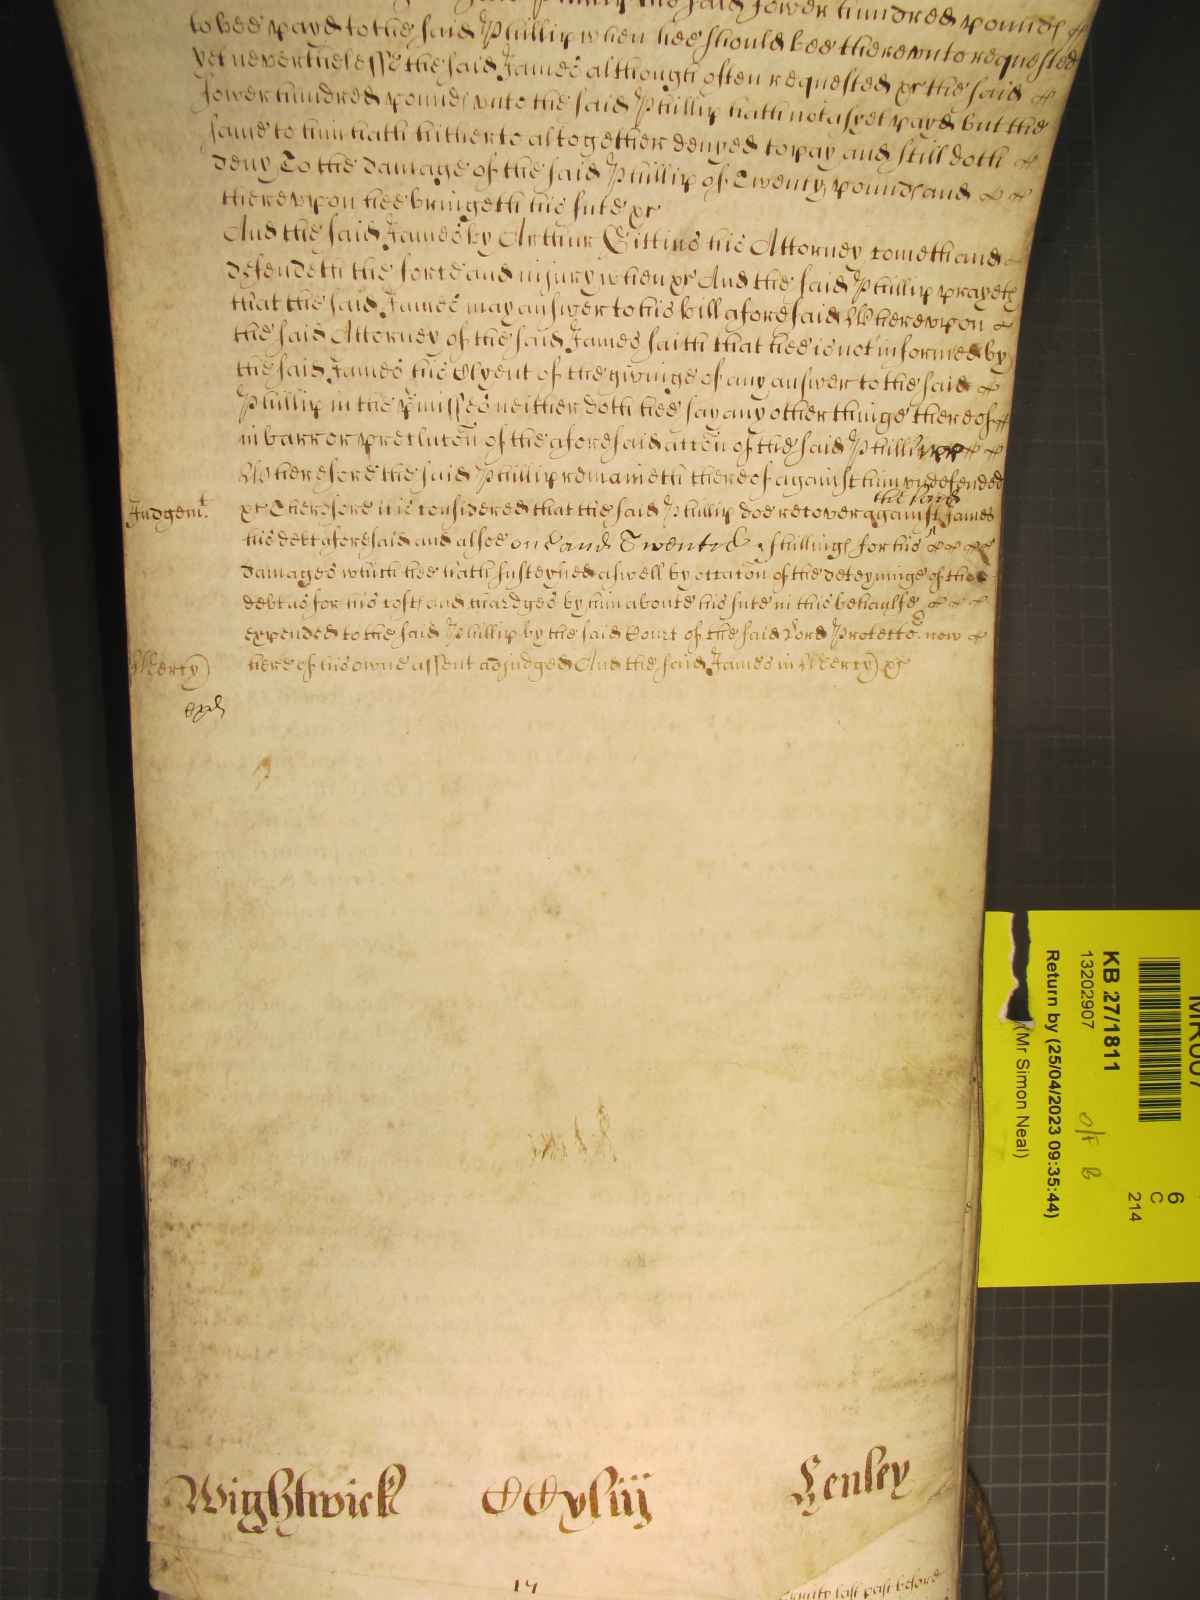 said Phillip the said fower hundred pounds
to bee payd to the said Phillip when hee should bee therevnto requested
yet neverthelesse the said James although often requested &c the said
fower hundred pounds vnto the said Phillip hath not as yet payd but the
same to him hath hitherto altogether denyed to pay and still doth
deny To the damage of the said Phillip of Twenty pounds and
therevpon hee bringeth his sute &c
And the said James by Arthur Gittins his Attorney cometh and
defendeth the force and iniury when &c And the said Phillip prayeth
that the said James may answer to his bill aforesaid Wherevpon
the said Attorney of the said James saith that hee is not informed by
the said James his Clyent of the givinge of any answer to the said
Phillip in the p'misses neither doth hee say any other thinge thereof
in barr or preclucōn of the aforesaid accōn of the said Phillip
Wherefore the said Phillip remaineth thereof against him vndefended
the said
Judgemt. &c Therefore it is considered that the said Phillip doe recover against James
his debt aforesaid and alsoe one and Twentie shillings for his
damages which hee hath susteyned aswell by occacōn of the deteyninge of the
debt as for his costs and chardges by him aboute his sute in this behaulfe
expended to the said Phillip by the said Court of the said Lord Protector now
Mercy here of his owne assent adjudged And the said James in Mercy &c
exd
Wightwick CCxliij Henley
14
last past before
KB 27/1811
13202907
Return by (25/04/2023 09:35:44)
(Mr Simon Neal)
O/F B
6
C
214